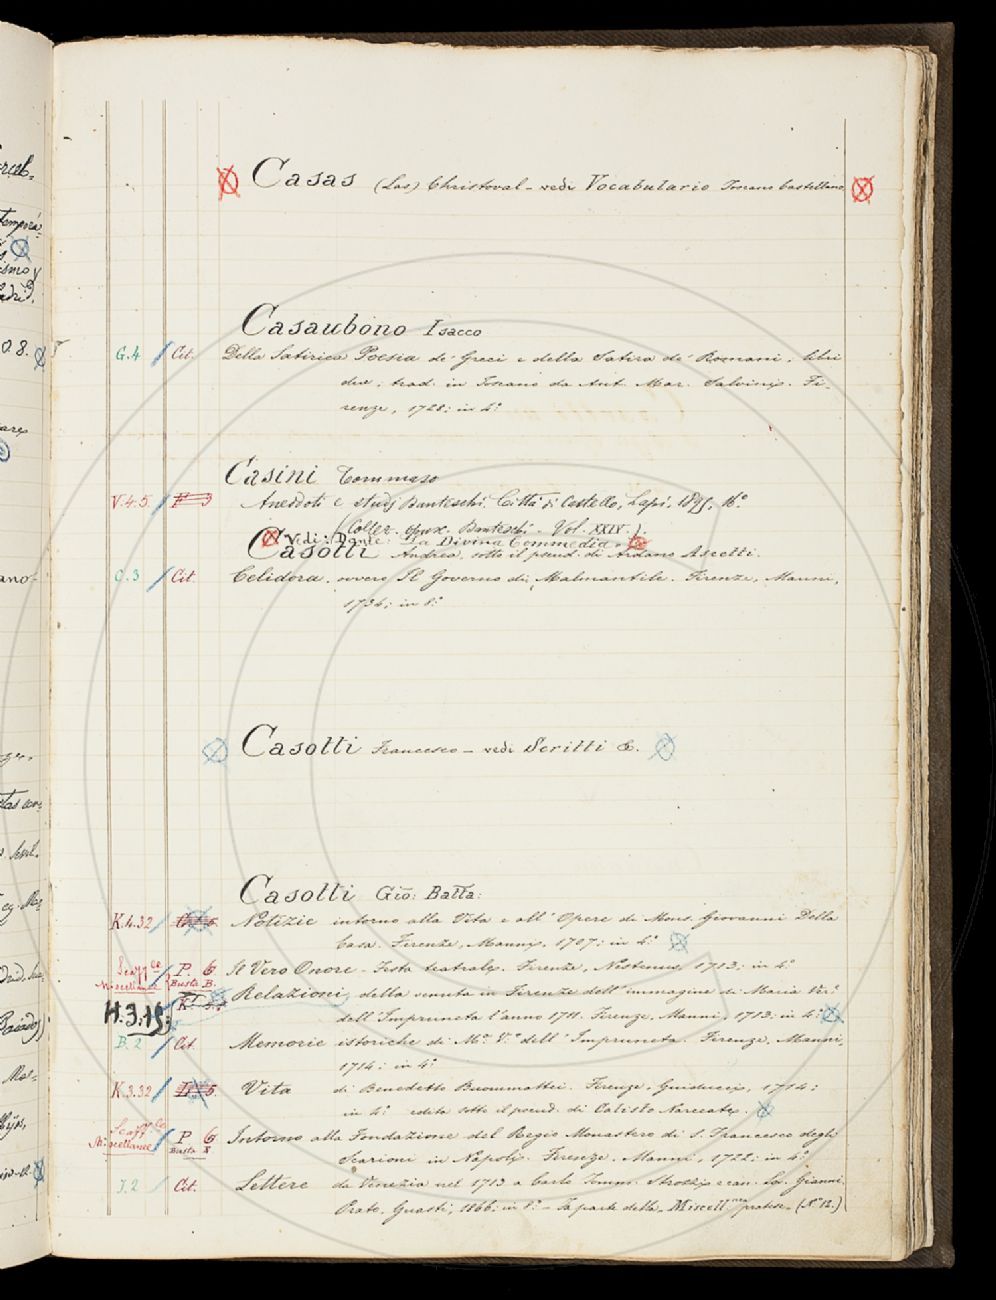 Casas (Las) Christoval - vedi Vocabulario Toscano Castellano
Casaubono Isacco
G.4 Cit. Della Satirica Poesia de' Greci e della Satira de' Romani, libri
due, trad. in Toscano da Ant. Mar. Salvini. Fi-
renze, 1728; in 4.°
Casini Tommaso
V.4.5 Aneddoti e studj Danteschi. Città di Castello, Lapi, 1895, 16.°
(Collez. Opusc. Danteschi - Vol. XXIV).
Vedi: Dante: La Divina Commedia.
Casotti Andrea, sotto il pseud. di Ardano Ascetti.
O.3 Cit. Celidora, ovvero Il Governo di Malmantile. Firenze, Manni,
1734; in 8.°
Casotti Francesco - vedi Scritti &.
Casotti Gio: Batta:
K.4.32 Notizie intorno alla Vita e all' Opere di Mons. Giovanni Della
Casa. Firenze, Manni, 1707; in 4.°
Scaff.le Miscellanee P. 6 Busta B. Il Vero Onore. Festa teatrale. Firenze, Nestenus, 1713; in 4.°
H.3.15; Relazioni della venuta in Firenze dell' immagine di Maria Ver.
dell' Impruneta l'anno 1711. Firenze, Manni, 1713; in 4.°
B.2 Cit. Memorie istoriche di M.a V.e dell' Impruneta. Firenze, Manni,
1714; in 4.°
K.3.32 Vita di Benedetto Buommattei. Firenze, Guiducci, 1714;
in 4.° edita sotto il pseud. di Calisto Narecate.
Scaff.le Miscellanee P. 6 Busta X. Intorno alla Fondazione del Regio Monastero di S. Francesco degli
Scarioni in Napoli. Firenze, Manni, 1722; in 4.°
J.2 Cit. Lettere da Venezia nel 1713 a Carlo Tomm. Strozzi e can. Lor. Gianni.
Prato, Guasti, 1866; in 8.° - Fa parte della Miscell.nea pratese (N.° 12.)